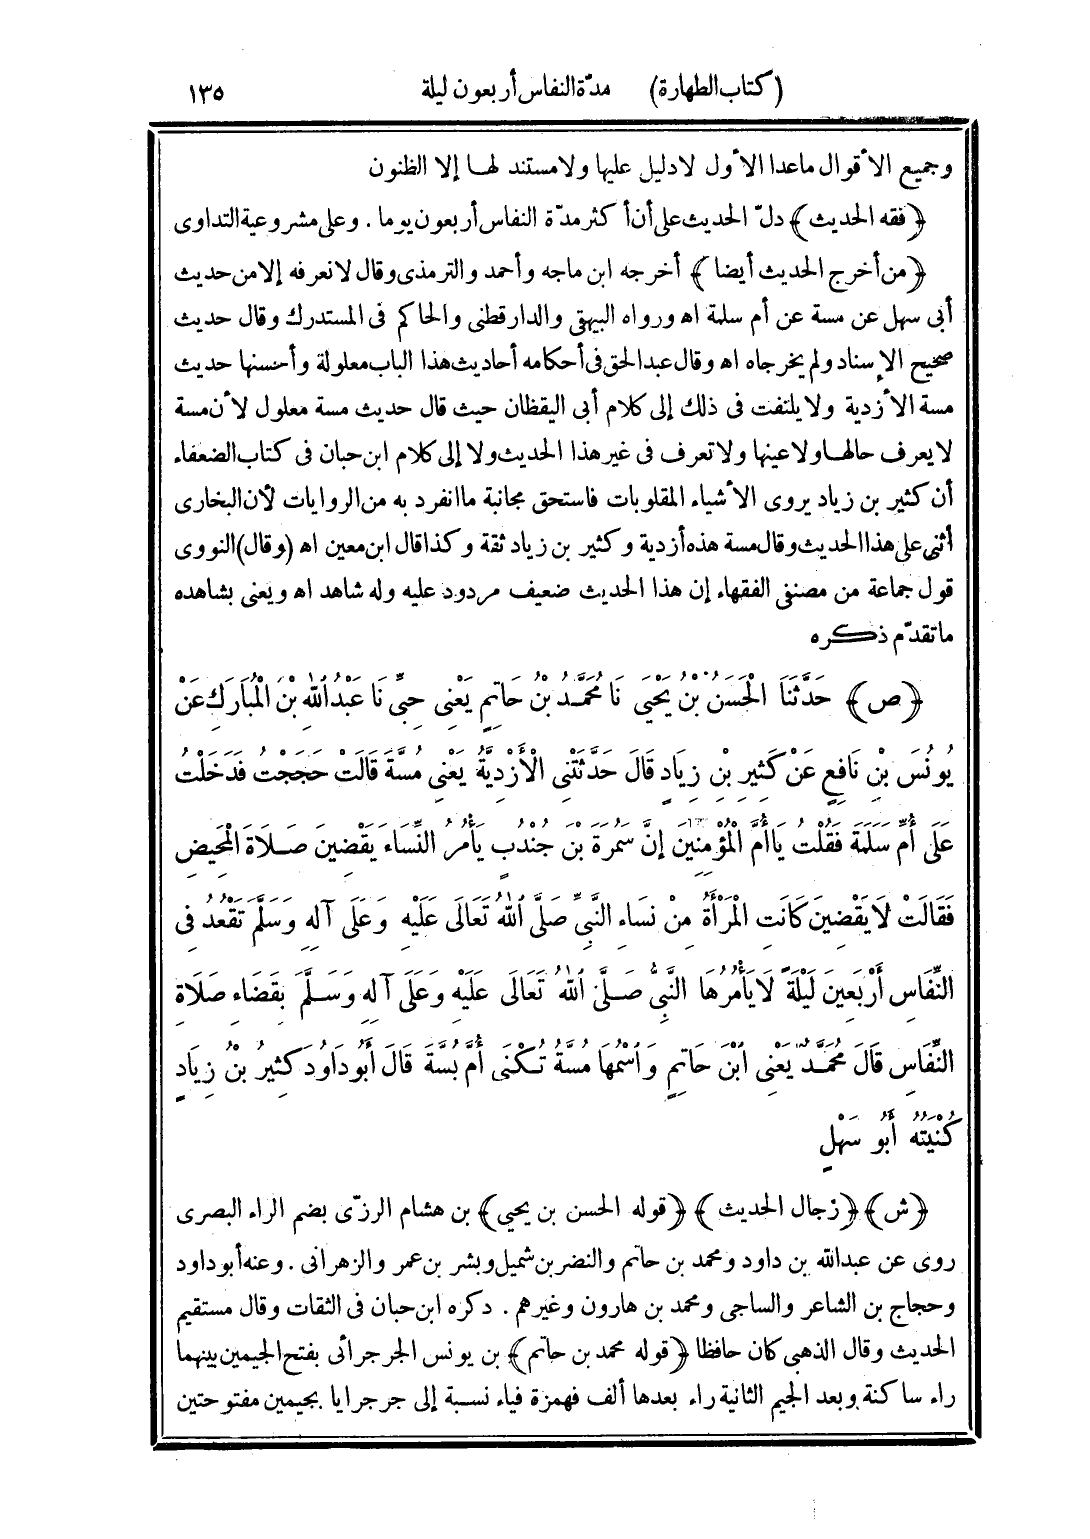 (كتاب الطهارة) مدّة النفاس أربعون ليلة ١٣٥
وجميع الأقوال ماعدا الأول لادليل عليها ولامستند لهـا إلا الظنون
﴿فقه الحديث﴾ دلّ الحديث على أن أكثر مدّة النفاس أربعون يوما. وعلى مشروعية التداوى
﴿من أخرج الحديث أيضا﴾ أخرجه ابن ماجه وأحمد والترمذى وقال لانعرفه إلا من حديث
أبى سهل عن مسة عن أم سلمة اه ورواه البيهقى والدارقطنى والحاكم فى المستدرك وقال حديث
صحيح الإسناد ولم يخرجاه اه وقال عبد الحق فى أحكامه أحاديث هذا الباب معلولة وأحسنها حديث
مسة الأزدية ولا يلتفت فى ذلك إلى كلام أبى اليقظان حيث قال حديث مسة معلول لأن مسة
لا يعرف حالهـا ولا عينها ولا تعرف فى غير هذا الحديث ولا إلى كلام ابن حبان فى كتاب الضعفاء
أن كثير بن زياد يروى الأشياء المقلوبات فاستحق مجانبة ما انفرد به من الروايات لأن البخارى
أثنى على هذا الحديث وقال مسة هذه أزدية وكثير بن زياد ثقة وكذا قال ابن معين اه (وقال) النووى
قول جماعة من مصنفى الفقهاء إن هذا الحديث ضعيف مردود عليه وله شاهد اه ويعنى بشاهده
ماتقدّم ذكره
﴿ص﴾ حَدَّثَنَا الْحَسَنُ بْنُ يَحْيَى نَا مُحَمَّـدُ بْنُ حَاتِمٍ يَعْنِى حِبِّى نَا عَبْدُ اللهِ بْنَ الْمُبَارَكِ عَنْ
يُونُسَ بْنِ نَافِعٍ عَنْ كَثِيرِ بْنِ زِيَادٍ قَالَ حَدَّثَتْنِى الْأَزْدِيَّةُ يَعْنِى مُسَّةَ قَالَتْ حَجَجْتُ فَدَخَلْتُ
عَلَى أُمِّ سَلَمَةَ فَقُلْتُ يَا أُمَّ الْمُؤْمِنِينَ إِنَّ سَمُرَةَ بْنَ جُنْدُبٍ يَأْمُرُ النِّسَاءَ يَقْضِينَ صَـلَاةَ الْمَحِيضِ
فَقَالَتْ لَا يَقْضِينَ كَانَتِ الْمَرْأَةُ مِنْ نِسَاءِ النَّبِىِّ صَلَّى اللهُ تَعَالَى عَلَيْهِ وَعَلَى آلِهِ وَسَلَّمَ تَقْعُدُ فِى
النِّفَاسِ أَرْبَعِينَ لَيْلَةً لَا يَأْمُرُهَا النَّبِىُّ صَـلَّى اللهُ تَعَالَى عَلَيْهِ وَعَلَى آلِهِ وَسَـلَّمَ بِقَضَاءِ صَلَاةِ
النِّفَاسِ قَالَ مُحَمَّـدٌ يَعْنِى ابْنَ حَاتِمٍ وَاسْمُهَا مُسَّةُ تُـكْنَى أُمَّ بُسَّةَ قَالَ أَبُو دَاوُدَ كَثِيرُ بْنُ زِيَادٍ
كُنْيَتُهُ أَبُو سَهْلٍ
﴿ش﴾ ﴿رجال الحديث﴾ ﴿قوله الحسن بن يحيى﴾ بن هشام الرزّى بضم الراء البصرى
روى عن عبدالله بن داود ومحمد بن حاتم والنضر بن شميل وبشر بن عمر والزهرانى. وعنه أبوداود
وحجاج بن الشاعر والساجى ومحمد بن هارون وغيرهم. ذكره ابن حبان فى الثقات وقال مستقيم
الحديث وقال الذهبى كان حافظا ﴿قوله محمد بن حاتم﴾ بن يونس الجرجرائى بفتح الجيمين بينهما
راء ساكنة وبعد الجيم الثانية راء بعدها ألف فهمزة فياء نسـبة إلى جرجرايا بجيمين مفتوحتين